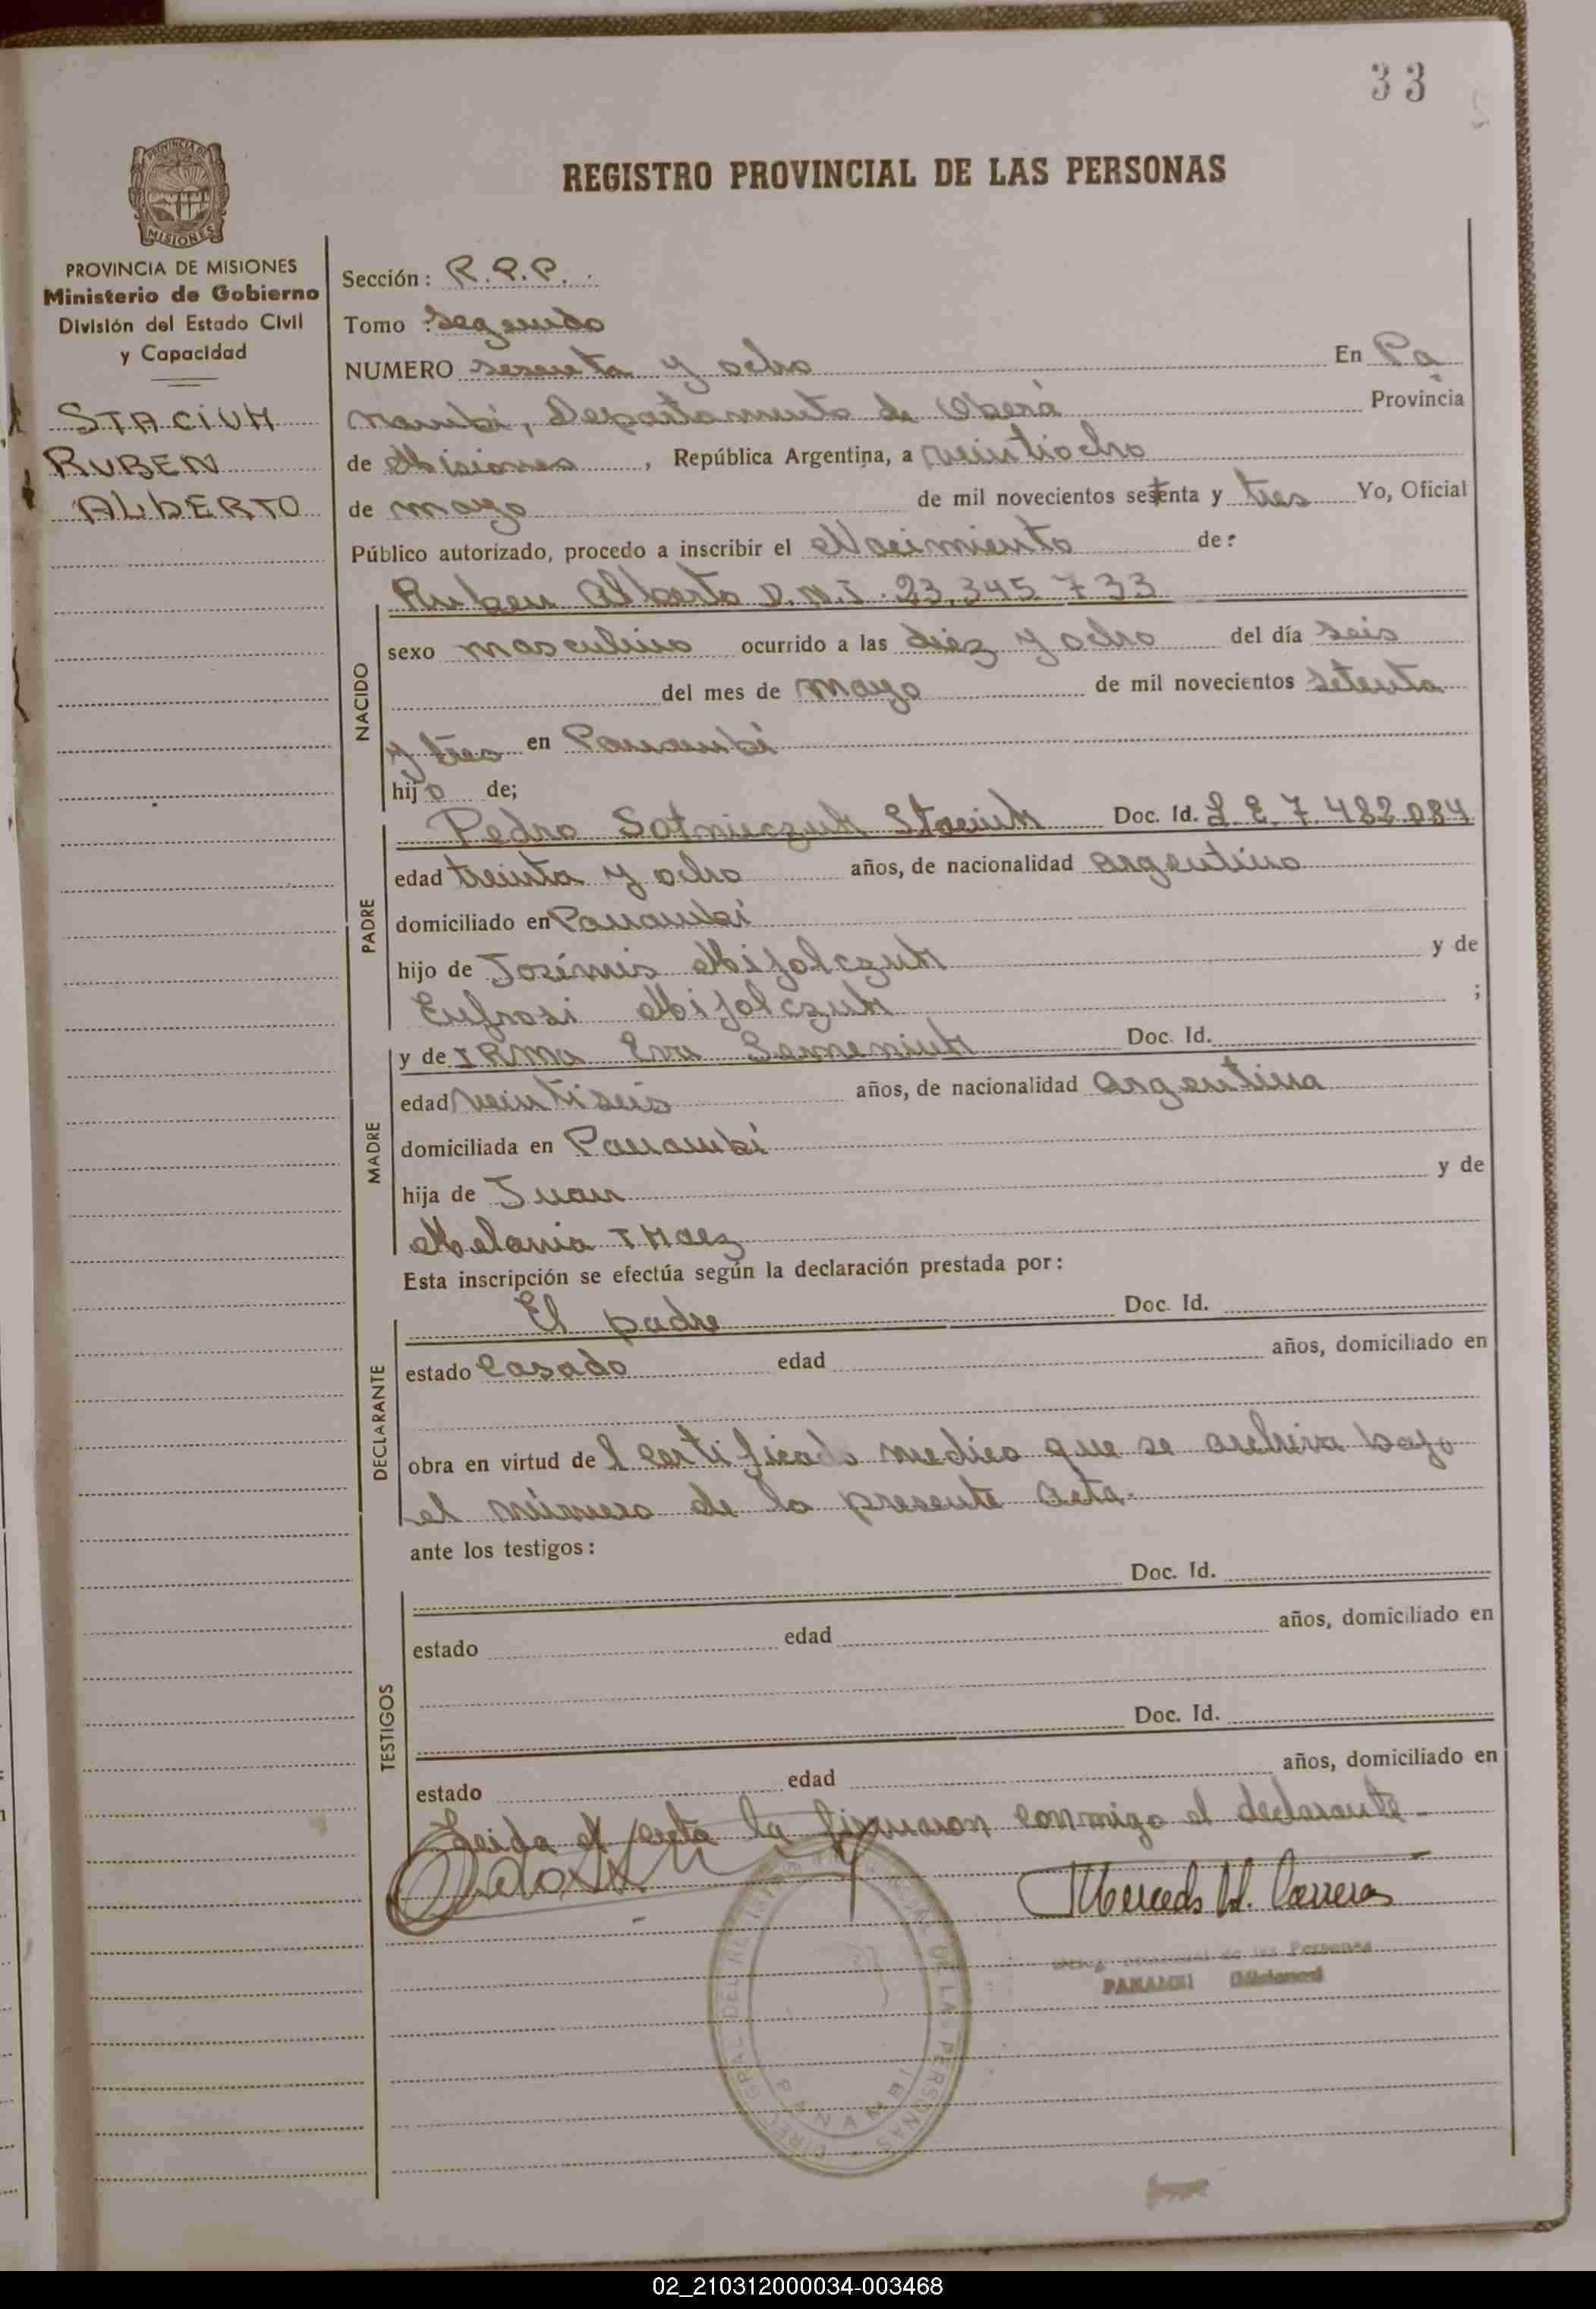 33
REGISTRO PROVINCIAL DE LAS PERSONAS
PROVINCIA DE MISIONES
PROVINCIA DE MISIONES
Ministerio de Gobierno
División del Estado Civil
y Capacidad
STACIUK
RUBEN
ALBERTO
Sección: R.P.P.
Tomo Segundo
NUMERO sesenta y ocho En Pa
nambi, Departamento de Oberá Provincia
de Misiones, República Argentina, a veintiocho
de mayo de mil novecientos setenta y tres Yo, Oficial
Público autorizado, procedo a inscribir el Nacimiento de:
Ruben Alberto D.N.I. 23.345.733
NACIDO
sexo masculino ocurrido a las diez y ocho del día seis
del mes de mayo de mil novecientos setenta
y tres en Panambi
hijo de;
PADRE
Pedro Sotnieczuk Staciuk Doc. Id. L E 7.482.084
edad treinta y ocho años, de nacionalidad argentino
domiciliado en Panambi
hijo de Mijalczuk y de
Eufrosi Mijalczuk ;
MADRE
y de IRMA Eva Semeniuk Doc. Id.
edad veintiseis años, de nacionalidad argentina
domiciliada en Panambi
hija de Juan y de
Melania
Esta inscripción se efectúa según la declaración prestada por:
DECLARANTE
El padre Doc. Id.
estado Casado edad años, domiciliado en
obra en virtud del certificado medico que se archiva bajo
el número de la presente acta.
ante los testigos:
TESTIGOS
Doc. Id.
estado edad años, domiciliado en
Doc. Id.
estado edad años, domiciliado en
Leida el acta la firmaron conmigo el declarante
Mercedes Carreras
de las Personas
PANAMBI (Misiones)
DEL REGISTRO DE LAS PERSONAS
PANAMBI
02_210312000034-003468